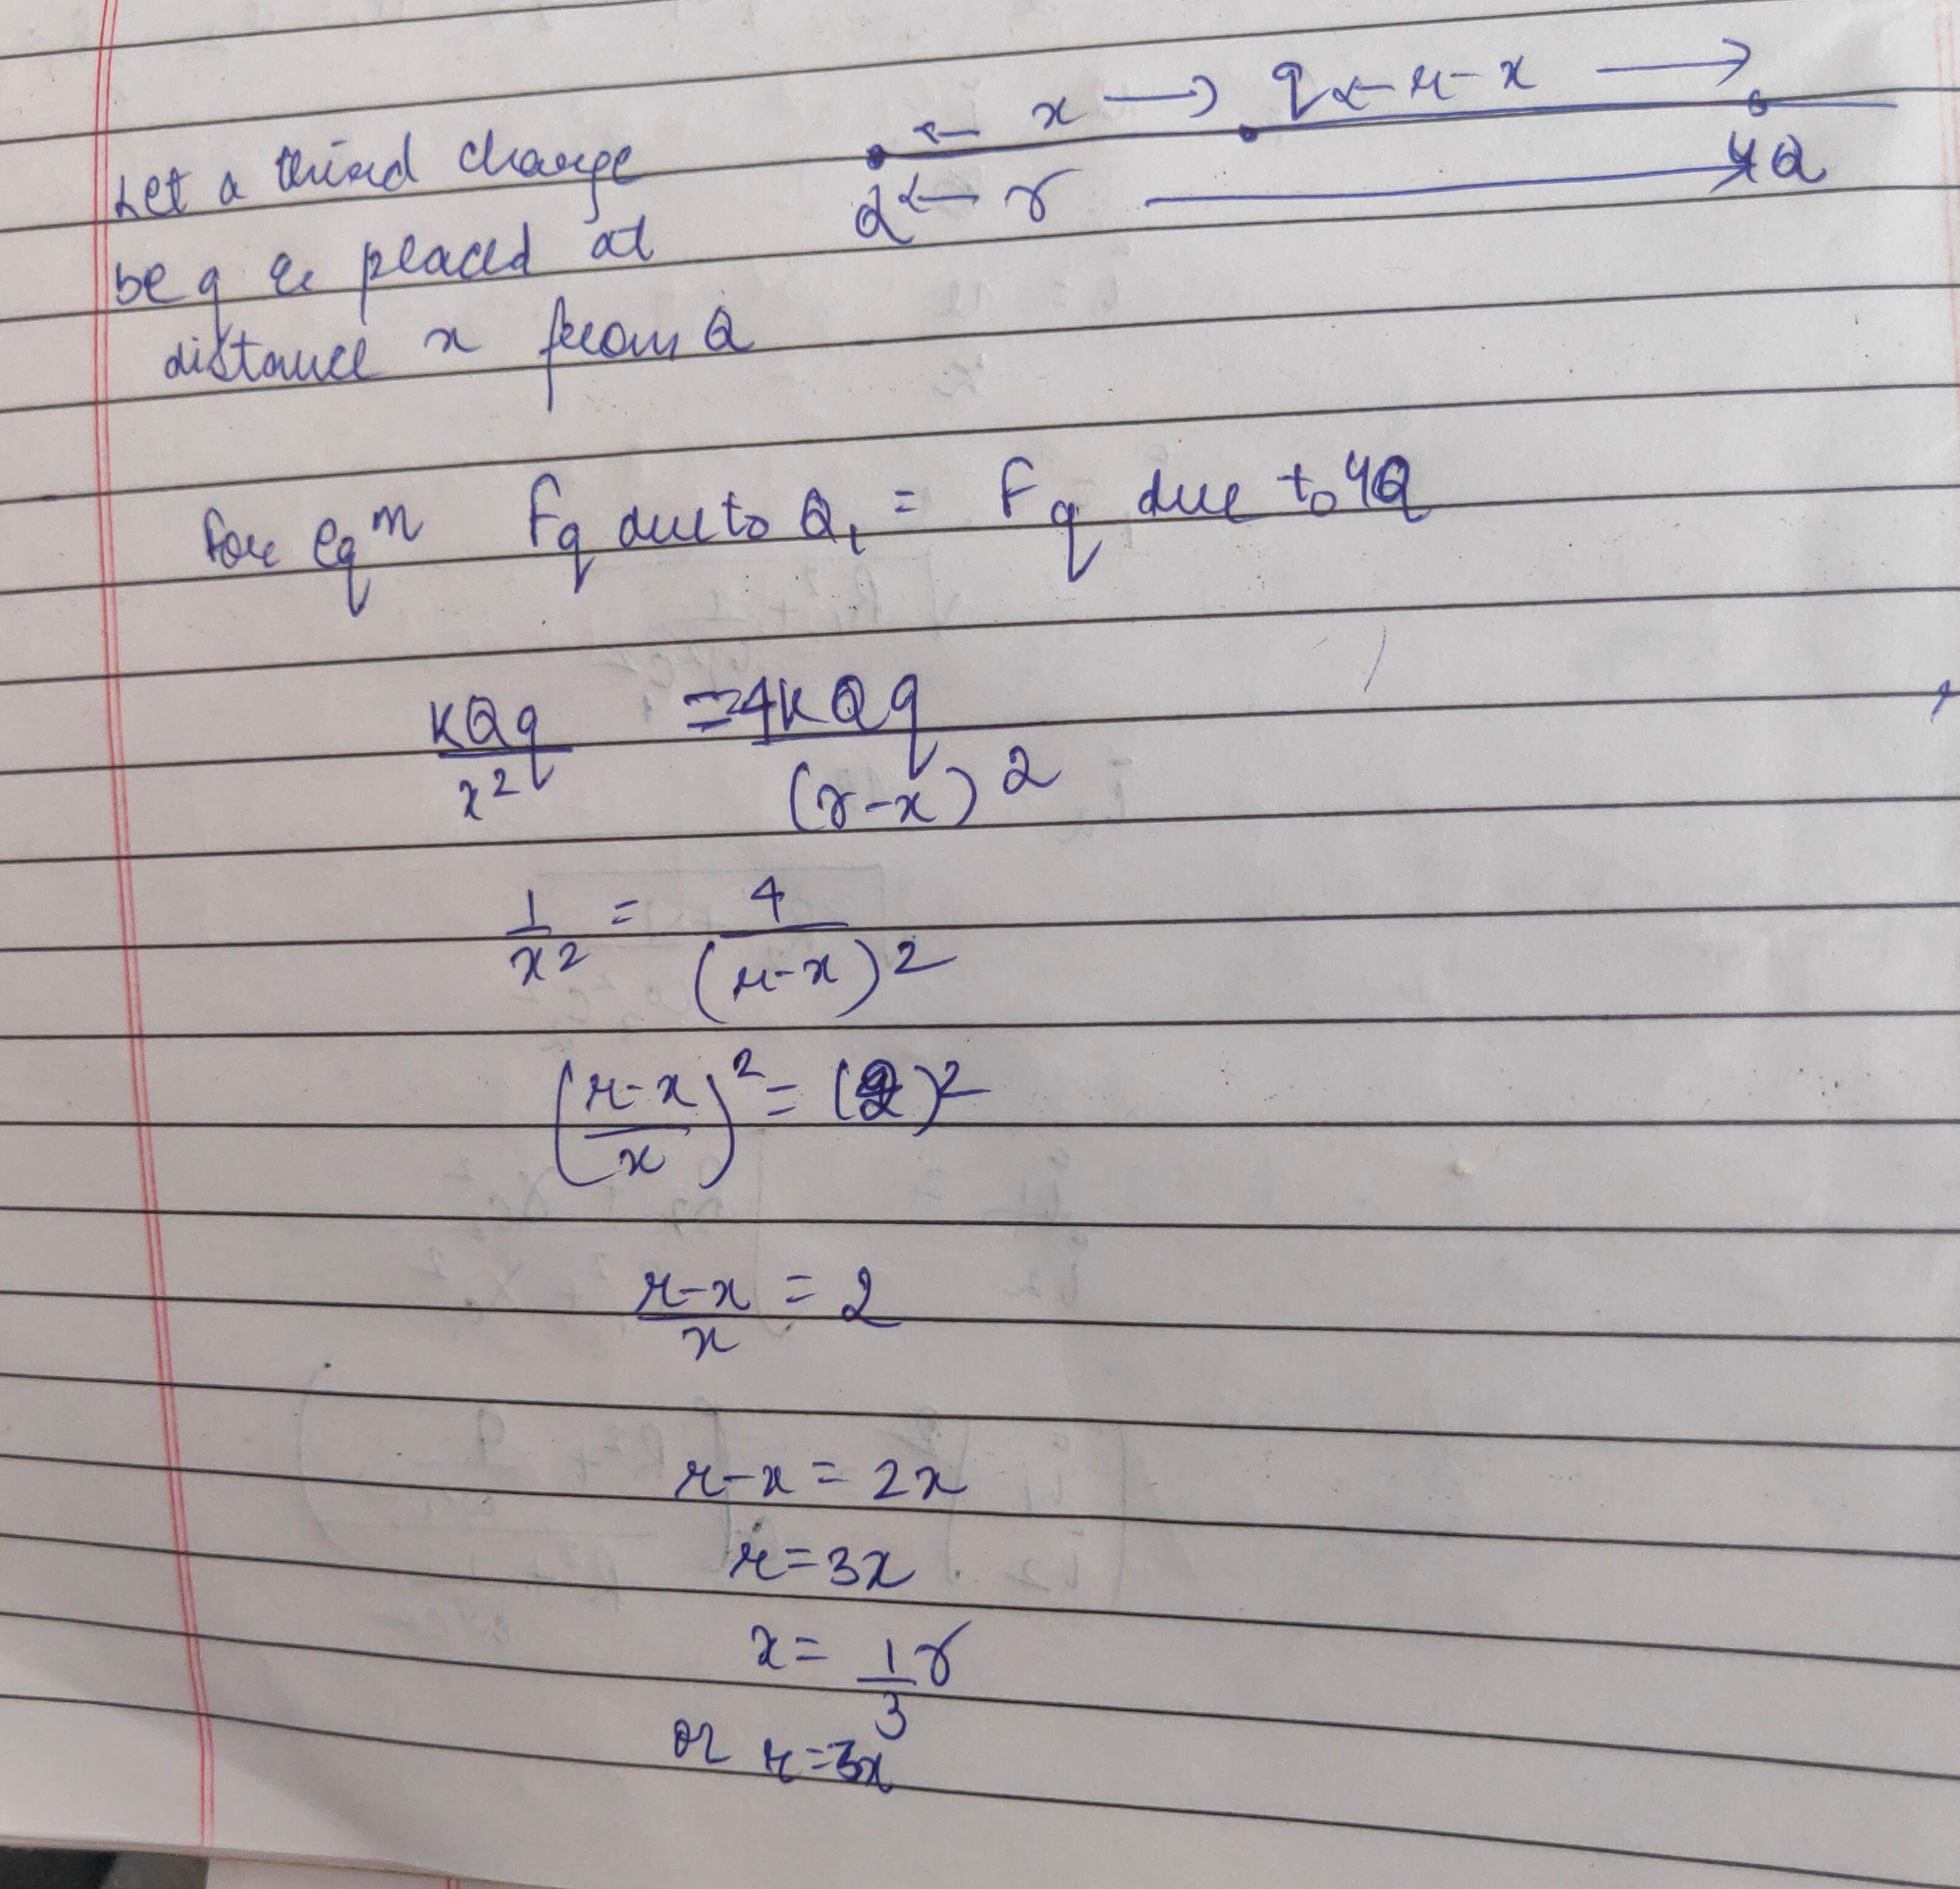 ← x → q ← r-x →
Let a third charge
Q ← r → 4Q
be q & placed at
distance x from Q
For eqm Fq due to Q, = Fq due to 4Q
KQq/x² = 4KQq/(r-x)²
1/x² = 4/(r-x)²
((r-x)/x)² = (2)²
(r-x)/x = 2
r-x = 2x
r=3x
x = 1/3 r
or r=3x